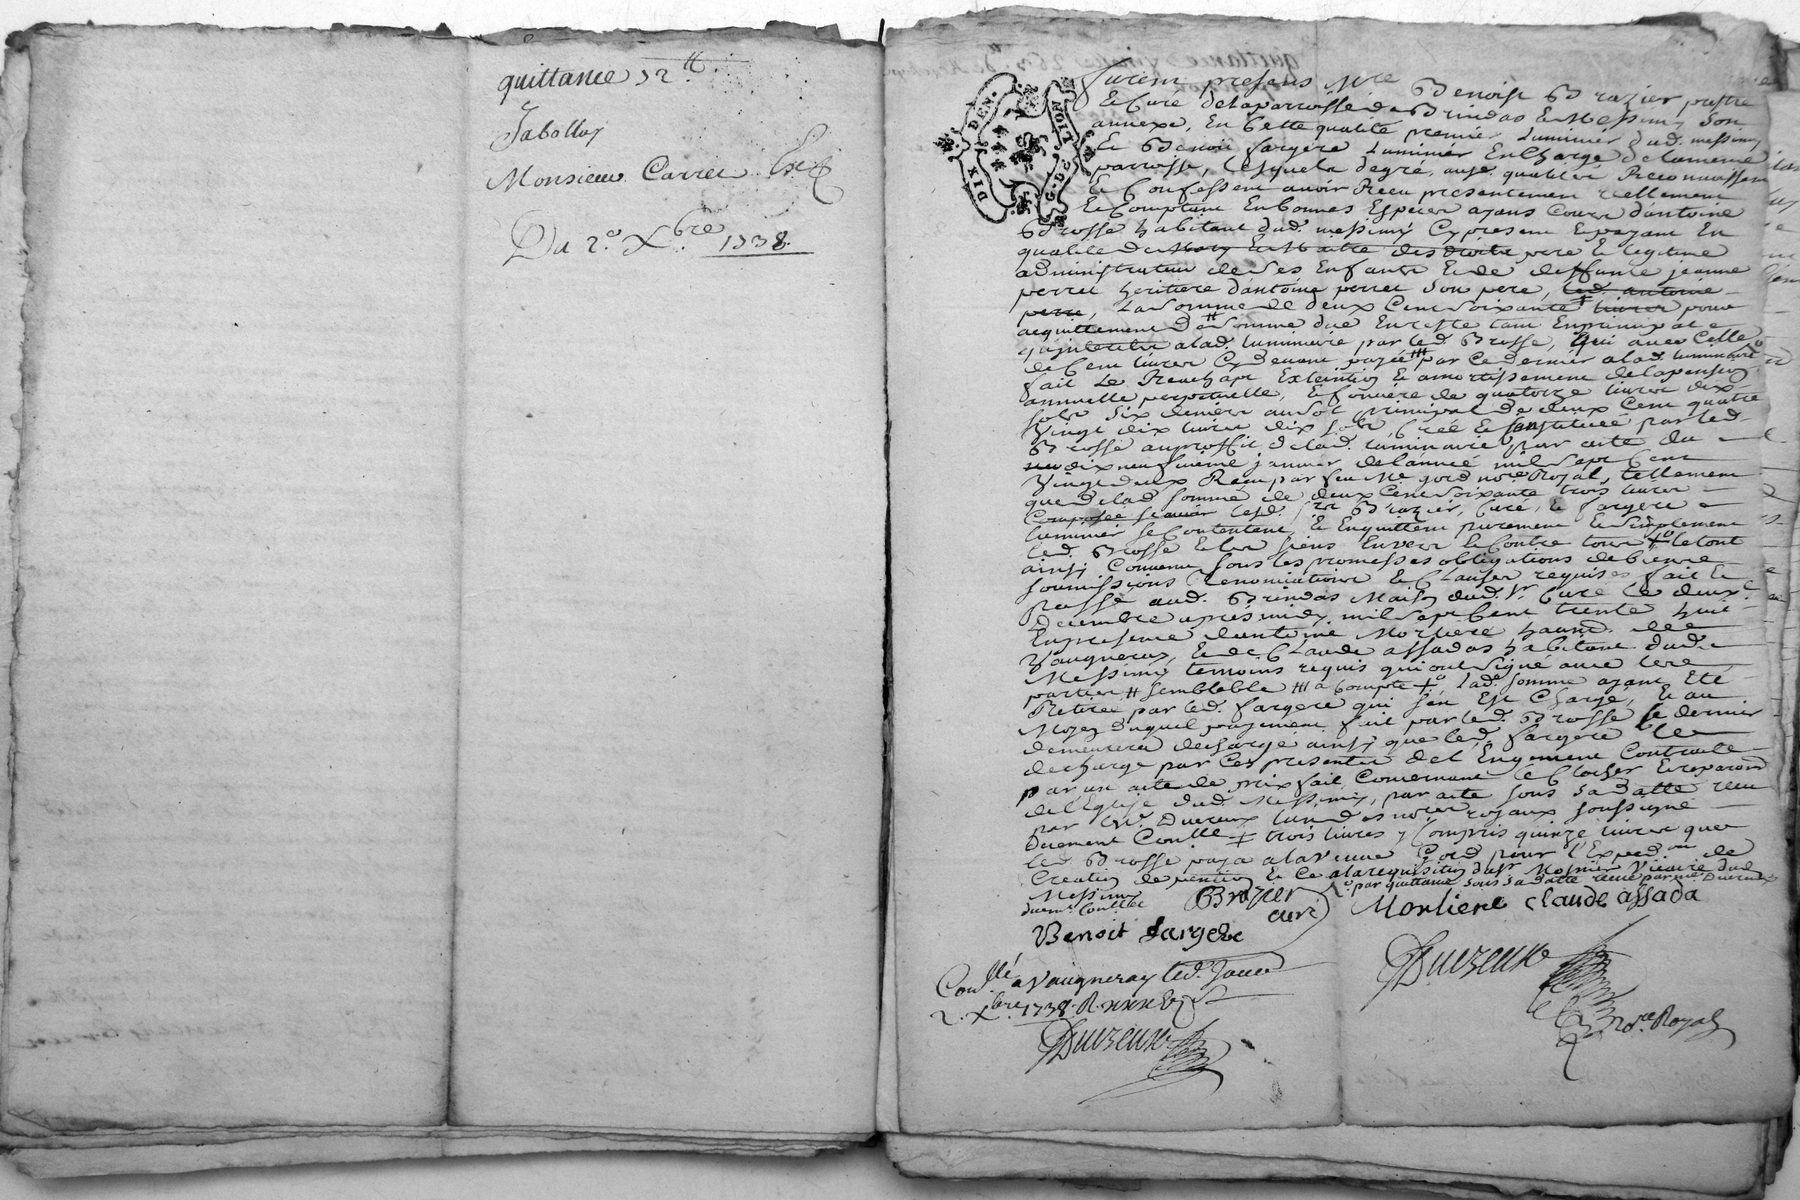 quittance 12ᵗᵗ
Jabollay
Monsieur Carret
Du 2.º Xbre 1738.
DIX DEN.
G. DE LYON
Furent presens Mre Benoist Brazier prestre
Et Cure de la parroisse de Brindas et Messimy son
annexe, En Cette qualité premier Luminier dud. messimy
Et Benoit fargere Luminier En Charge de la meme
parroisse, Lesquels de gré, aud. qualités Reconnoissent
Et Confessent avoir Receu presentement reellement
Et Comptant En bonnes Especes ayans Cours d'antoine
Brosse habitant dud. messimy Cy present Et payant En
qualité de Mary Et Maitre des droits pere Et legitime
administrateur de ses Enfants Et de deffunte jeanne
perret heritiere d'antoine perret son pere, led. antoine
perret, La somme de deux Cent soixante livres pour
acquittement de # somme due En reste tant En principal
qu'interets a lad. luminaire par led. Brosse, qui avec Celle
de Cent livres Cy devant payée par Ce dernier a lad. luminaire
fait Le Reachapt Extinction Et amortissement de la pension
annuelle perpetuelle, Et fonciere de quatorze livres dix
sols six deniers au sol principal de deux Cent quatre
Vingt dix livres dix sols, Créé Et Constituée par led.
Brosse au proffit de lad. luminaire par acte du
dix neufvieme janvier de l'année mil sept Cent
Vingt deux Receu par feu Me gord nore Royal, tellement
que de lad. somme de deux Cent soixante trois livres
Comp.sée scavoir lesd. srs Brazier, Curé, Et fargere
luminier se Contentent, Et Enquittent purement Et simplement
led. Brosse Et les siens Envers Et Contre tous +º le tout
ainsy Convenu sous les promesses obligations de biens
soumissions Renonciations Et Clauses requises, fait Et
passé aud. Brindas Maison dud. sr Curé Le deux.e
Decembre apres midy mil sept Cent trente huit
En presence d'antoine Morliere habitt de
Vaugneray, Et de Claude assadas habitant dud.
Messimy temoins requis qui ont signé avec les
parties # semblable ### a Compte +º lad. somme ayant Eté
Retirée par led. fargere qui s'en Est Chargé, Et au
Moyen duquel payement fait par led. Brosse le dernier
demeurera dechargé ainsy que led. fargere le
decharge par Ces presentes de l'Engagement Contracté
par un acte de prix fait Concernant le Clocher Et reparaons
de l'Eglise dud. Messimy, par acte sous sa datte receu
par Me Duvreux lun des nores royaux soussigné
Duement Conllé + trois livres y Compris quinze livres que
led. Brosse paya a la Veuve Gord pour l'Expedon de
Creation de pention Et Ce a la requisition du sr Mosnier Vicaire dud.
Messimy par quittance sous sa datte receue par me Duvreux
duem.t Conllée
Brazier
curé
Morliere Claude assada
Benoit Fargere
Conllé a Vaugneray led. Jour
2. Xbre 1738. R.
Duvreux
Duvreux
nore Royal